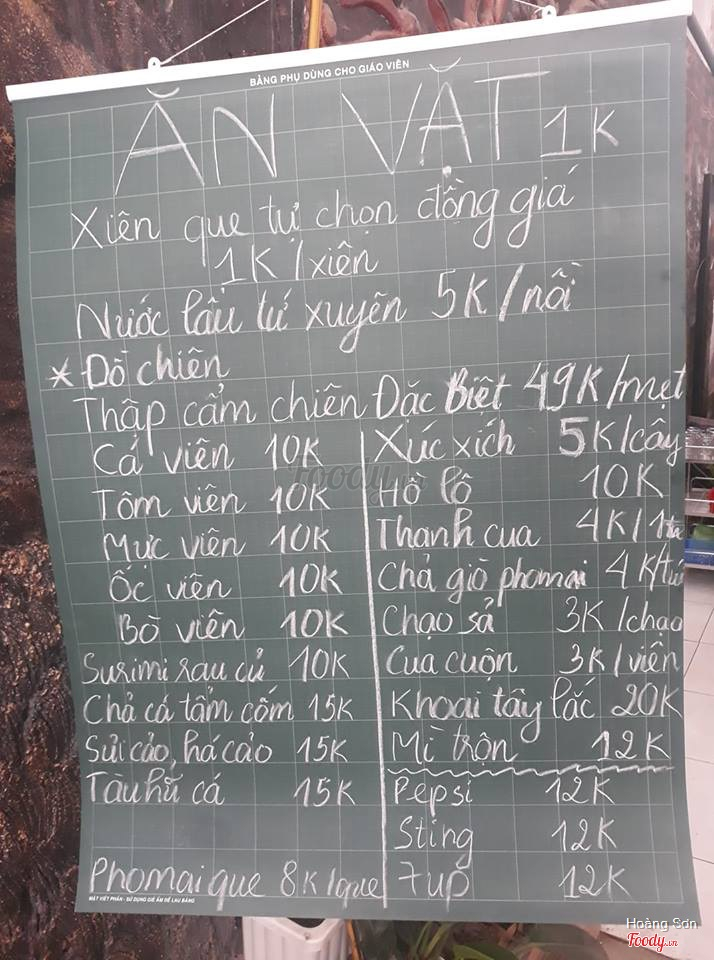 BẢNG PHỤ DÙNG CHO GIÁO VIÊN
ĂN VẶT 1K
Xiên que tự chọn đồng giá
1K/xiên
Nước lẩu tứ xuyên 5K/nồi
* Đồ chiên
Thập cẩm chiên Đặc Biệt 49K/mẹt
Cá viên 10K
Tôm viên 10K
Mực viên 10K
Ốc viên 10K
Bò viên 10K
Surimi rau củ 10K
Chả cá tẩm cốm 15K
Sủi cảo, há cảo 15K
Tàu hũ cá 15K
Phomai que 8K/que
Xúc xích 5K/cây
Hồ lô 10K
Thanh cua 4K/1
Chả giò phomai 4K/
Chạo sả 3K/chạo
Cua cuộn 3K/viên
Khoai tây lắc 20K
Mì trộn 12K
Pepsi 12K
Sting 12K
7up 12K
MẶT VIẾT PHẤN - SỬ DỤNG GIẺ ẨM ĐỂ LAU BẢNG
Foody.vn
Hoàng Sơn
Foody.vn